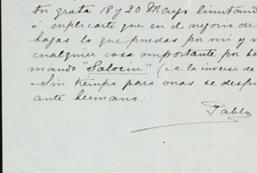 tu grata 18 y 20 Mayo limitand
á suplicarte que en el negocio de
hagas lo que puedas por mi y
cualquier cosa importante por
mando "Salocin" (i.e. la inversa de
Sin tiempo para mas se despi
ante hermano.
Pablo